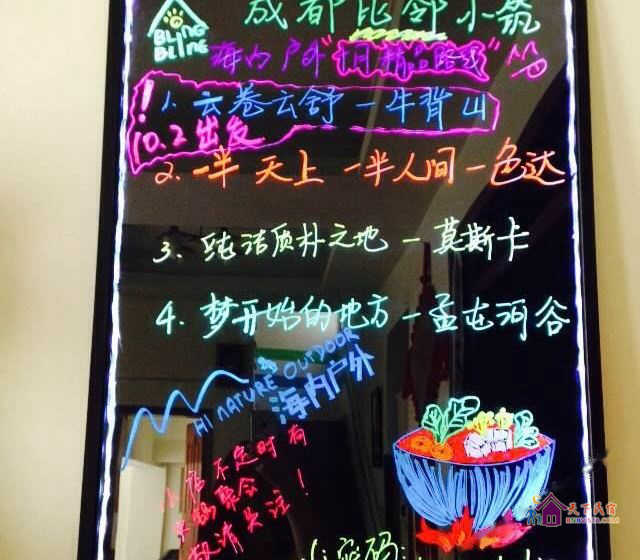 成都比邻小筑
BLING
BLING
海内户外"十月精品路线"
! 1. 云卷云舒一牛背山
10.2出发
2. 一半天上 一半人间 一色达
3. 纯洁质朴之地 一 莫斯卡
4. 梦开始的地方一孟屯河谷
HI NATURE OUTDOOR
海内户外
小店不定时有
火锅聚会
敬请关注!
密码:
天下民宿